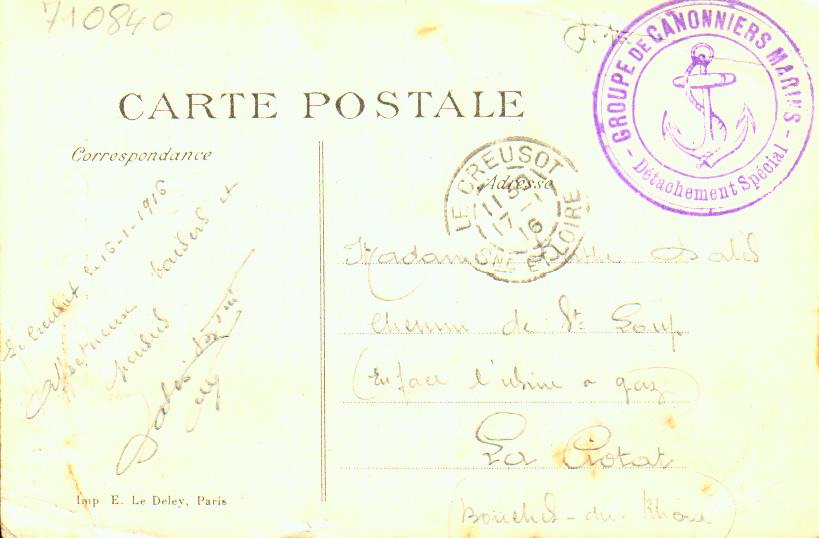 710840
F.M
GROUPE DE CANONNIERS MARINS
- Détachement Spécial -
CARTE POSTALE
Correspondance
Adresse
LE CREUSOT
SNE ET LOIRE
11 30
17 - 1
16
Le Creusot le 16-1-1916
Affectueux baisers et
Madame Dalès
Chemin de St Loup
(En face l'usine a gaz)
La Ciotat
(Bouches-du-Rhône)
Imp E. Le Deley, Paris